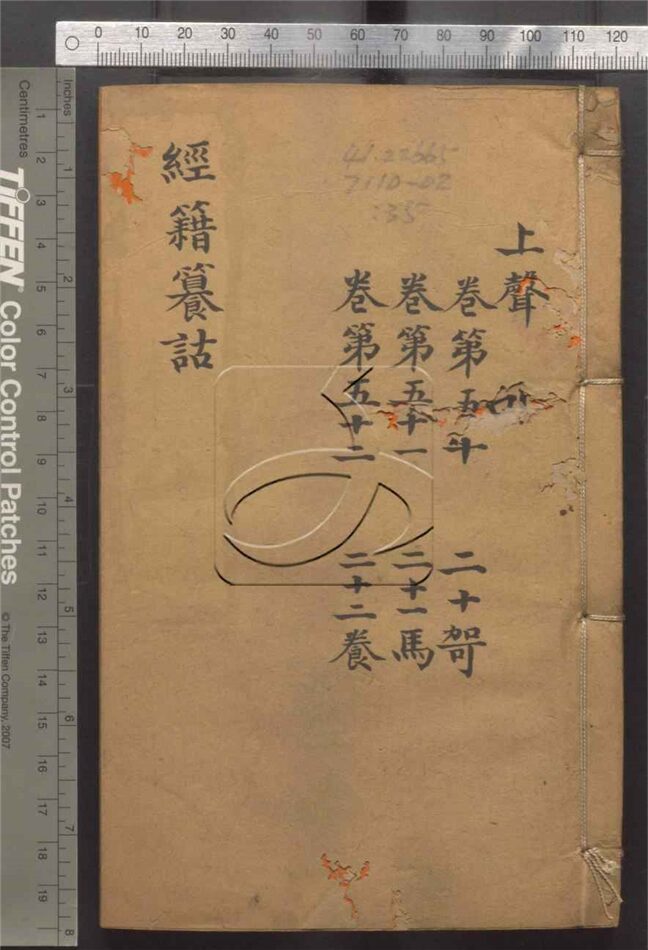 0 10 20 30 40 50 60 70 80 90 100 110 120
上聲
卷第五十 二十哿
卷第五十一 二十一馬
卷第五十二 二十二養
經籍籑詁
7110-02
Inches
1 2 3 4 5 6 7 8
Centimetres
1 2 3 4 5 6 7 8 9 10 11 12 13 14 15 16 17 18 19
TIFFEN Color Control Patches
© The Tiffen Company, 2007